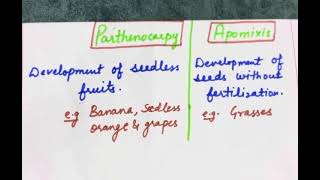 Parthenocarpy
Development of seedless
fruits.
e.g Banana, Sedless
orange & grapes
Apomixis
Development of
seeds without
fertilization.
e.g. Grasses